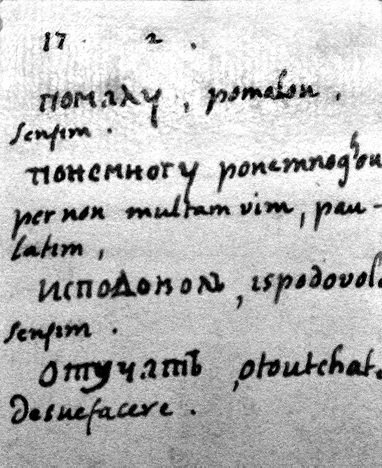 17 2 .
помалу , pomalou .
sensim .
понемногу ponemnoghou
per non multam vim , pau-
latim ,
исподовол , ispodovol
sensim .
отучать , otoutchat
desuefacere .